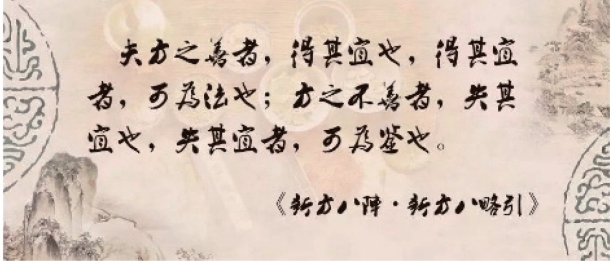 夫方之善者，得其宜也，得其宜
者，可為法也；方之不善者，失其
宜也，失其宜者，可為鉴也。
《新方八陣·新方八略引》